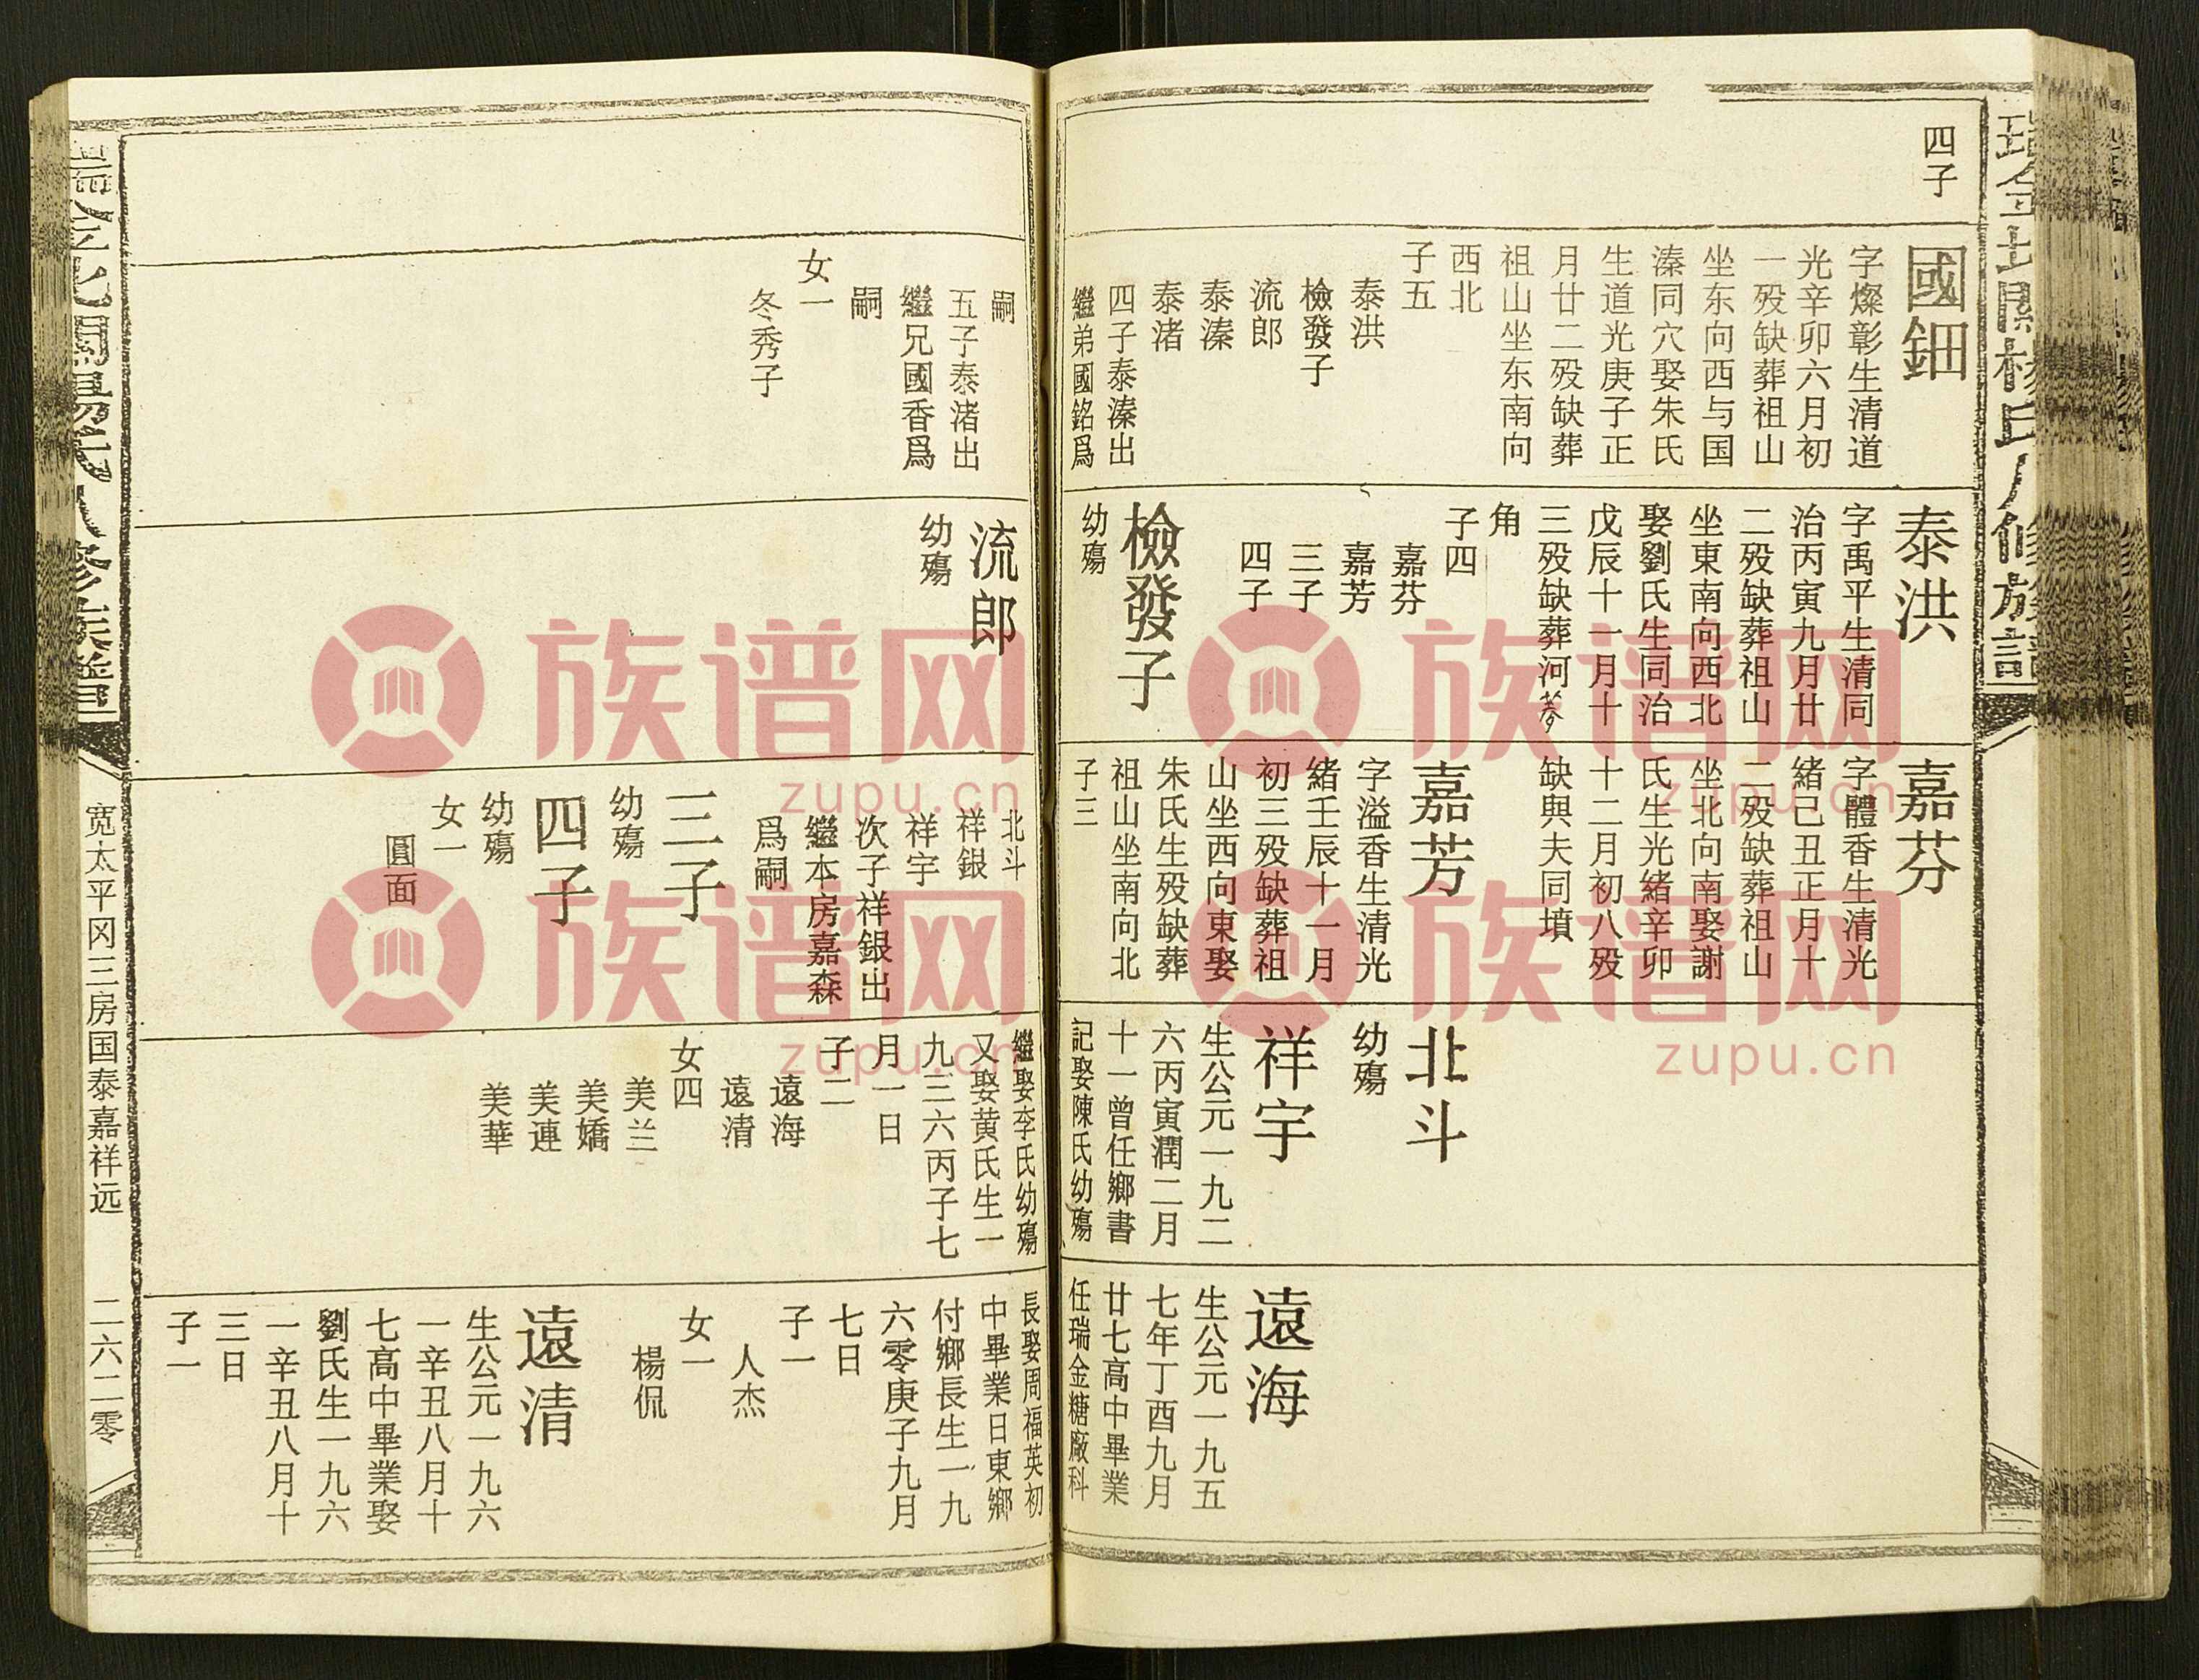 四子
國鈿
字燦彰生清道
光辛卯六月初
一殁缺葬祖山
坐东向西与国
溱同穴娶朱氏
生道光庚子正
月廿二殁缺葬
祖山坐东南向
西北
子五
泰洪
檢發子
流郎
泰溱
泰渚
四子泰溱出
繼弟國銘爲
泰洪
字禹平生清同
治丙寅九月廿
二殁缺葬祖山
坐東南向西北
娶劉氏生同治
戊辰十一月十
三殁缺葬河
角
子四
嘉芬
嘉芳
三子
四子
檢發子
幼殤
嘉芬
字體香生清光
緒己丑正月十
二殁缺葬祖山
坐北向南娶謝
氏生光緒辛卯
十二月初八殁
缺與夫同墳
嘉芳
字溢香生清光
緒壬辰十一月
初三殁缺葬祖
山坐西向東娶
朱氏生殁缺葬
祖山坐南向北
子三
北斗
幼殤
祥宇
生公元一九二
六丙寅潤二月
十一曾任鄉書
記娶陳氏幼殤
遠海
生公元一九五
七年丁酉九月
廿七高中畢業
任瑞金糖廠科
嗣
五子泰渚出
繼兄國香爲
嗣
女一
冬秀子
流郎
幼殤
北斗
祥銀
祥宇
次子祥銀出
繼本房嘉森
爲嗣
三子
幼殤
四子
幼殤
女一
圓面
繼娶李氏幼殤
又娶黄氏生一
九三六丙子七
月一日
子二
遠海
遠清
女四
美兰
美嬌
美連
美華
長娶周福英初
中畢業日東鄉
付鄉長生一九
六零庚子九月
七日
子一
人杰
女一
楊侃
遠清
生公元一九六
一辛丑八月十
七高中畢業娶
劉氏生一九六
一辛丑八月十
三日
子一
宽太平冈三房国泰嘉祥远
二六二零
族谱网
zupu.cn
族谱网
zupu.cn
族谱网
zupu.cn
族谱网
zupu.cn